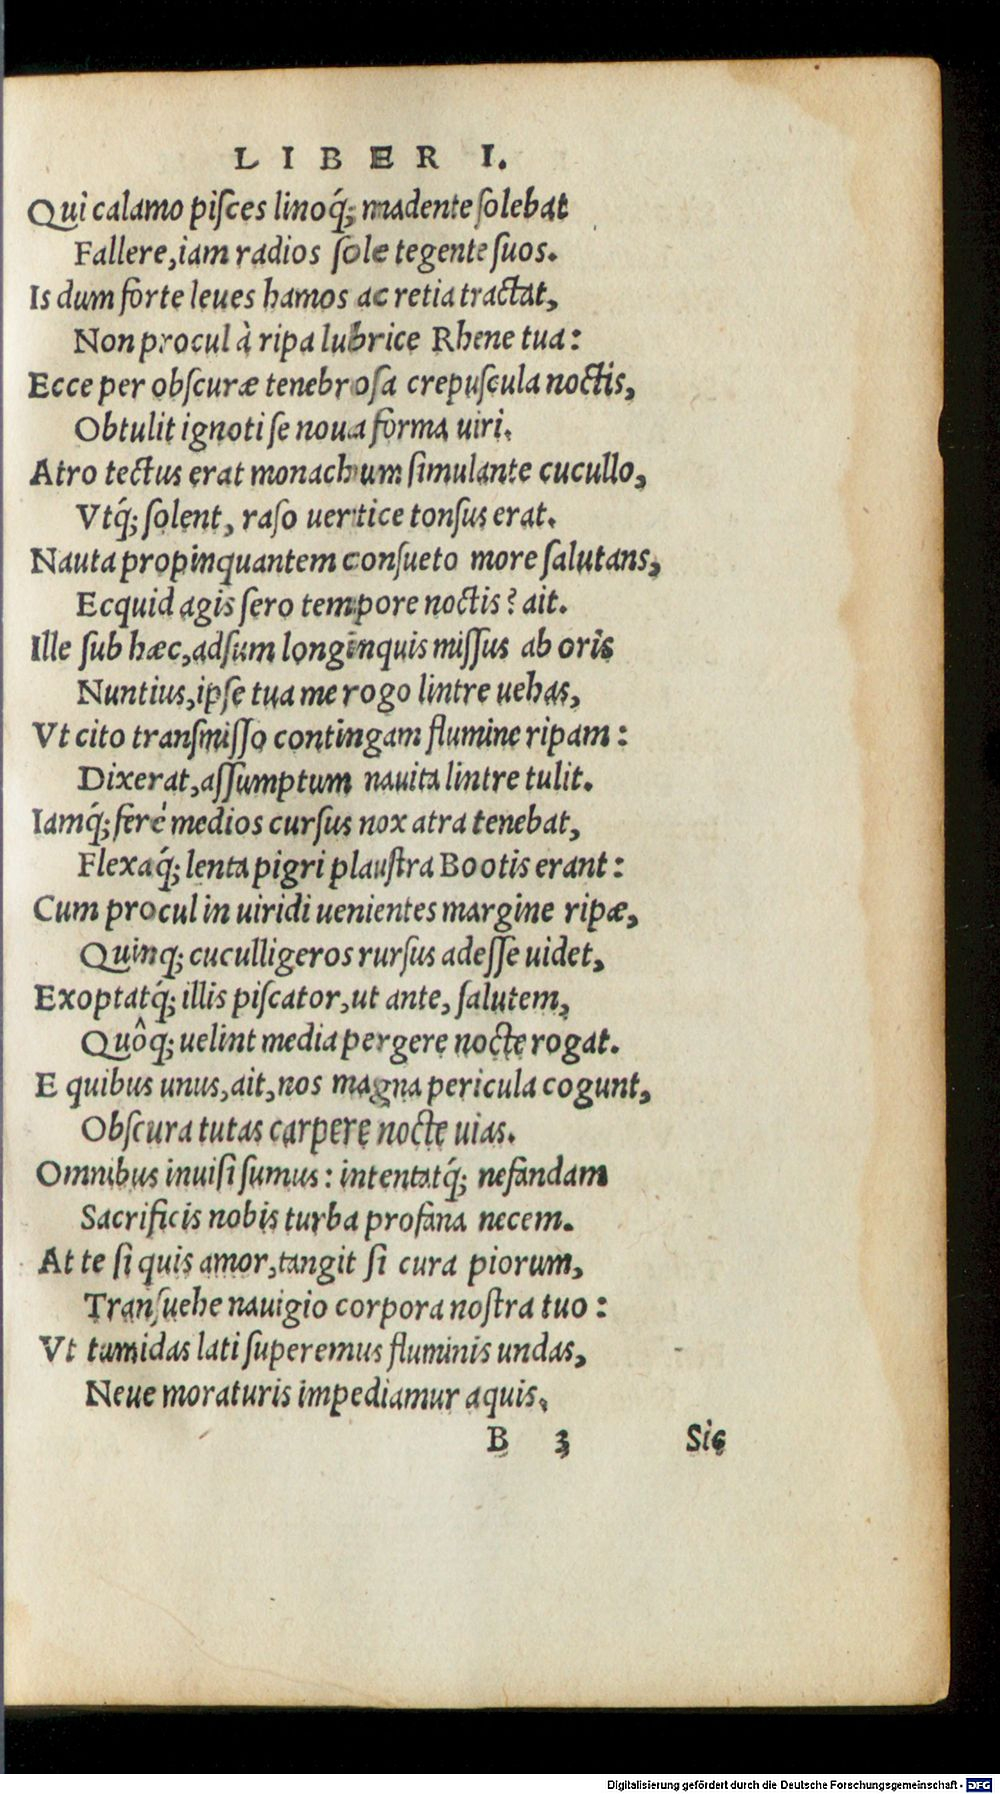 LIBER I.
Qui calamo piſces linoq́; madente ſolebat
Fallere, iam radios ſole tegente ſuos.
Is dum forte leues hamos ac retia tractat,
Non procul à ripa lubrice Rhene tua:
Ecce per obſcuræ tenebroſa crepuſcula noctis,
Obtulit ignoti ſe noua forma uiri.
Atro tectus erat monachum ſimulante cucullo,
Vtq́; ſolent, raſo uertice tonſus erat.
Nauta propinquantem conſueto more ſalutans,
Ecquid agis ſero tempore noctis? ait.
Ille ſub hæc, adſum longinquis miſſus ab oris
Nuntius, ipſe tua me rogo lintre uehas,
Vt cito tranſmiſſo contingam flumine ripam:
Dixerat, aſſumptum nauita lintre tulit.
Iamq́; ferè medios curſus nox atra tenebat,
Flexaq́; lenta pigri plauſtra Bootis erant:
Cum procul in uiridi uenientes margine ripæ,
Quinq; cuculligeros rurſus adeſſe uidet,
Exoptatq́; illis piſcator, ut ante, ſalutem,
Quôq; uelint media pergere nocte rogat.
E quibus unus, ait, nos magna pericula cogunt,
Obſcura tutas carpere nocte uias.
Omnibus inuiſi ſumus: intentatq́; nefandam
Sacrificis nobis turba profana necem.
At te ſi quis amor, tangit ſi cura piorum,
Tranſuehe nauigio corpora noſtra tuo:
Vt tumidas lati ſuperemus fluminis undas,
Neue moraturis impediamur aquis.
B 3 Sic
Digitalisierung gefördert durch die Deutsche Forschungsgemeinschaft - DFG